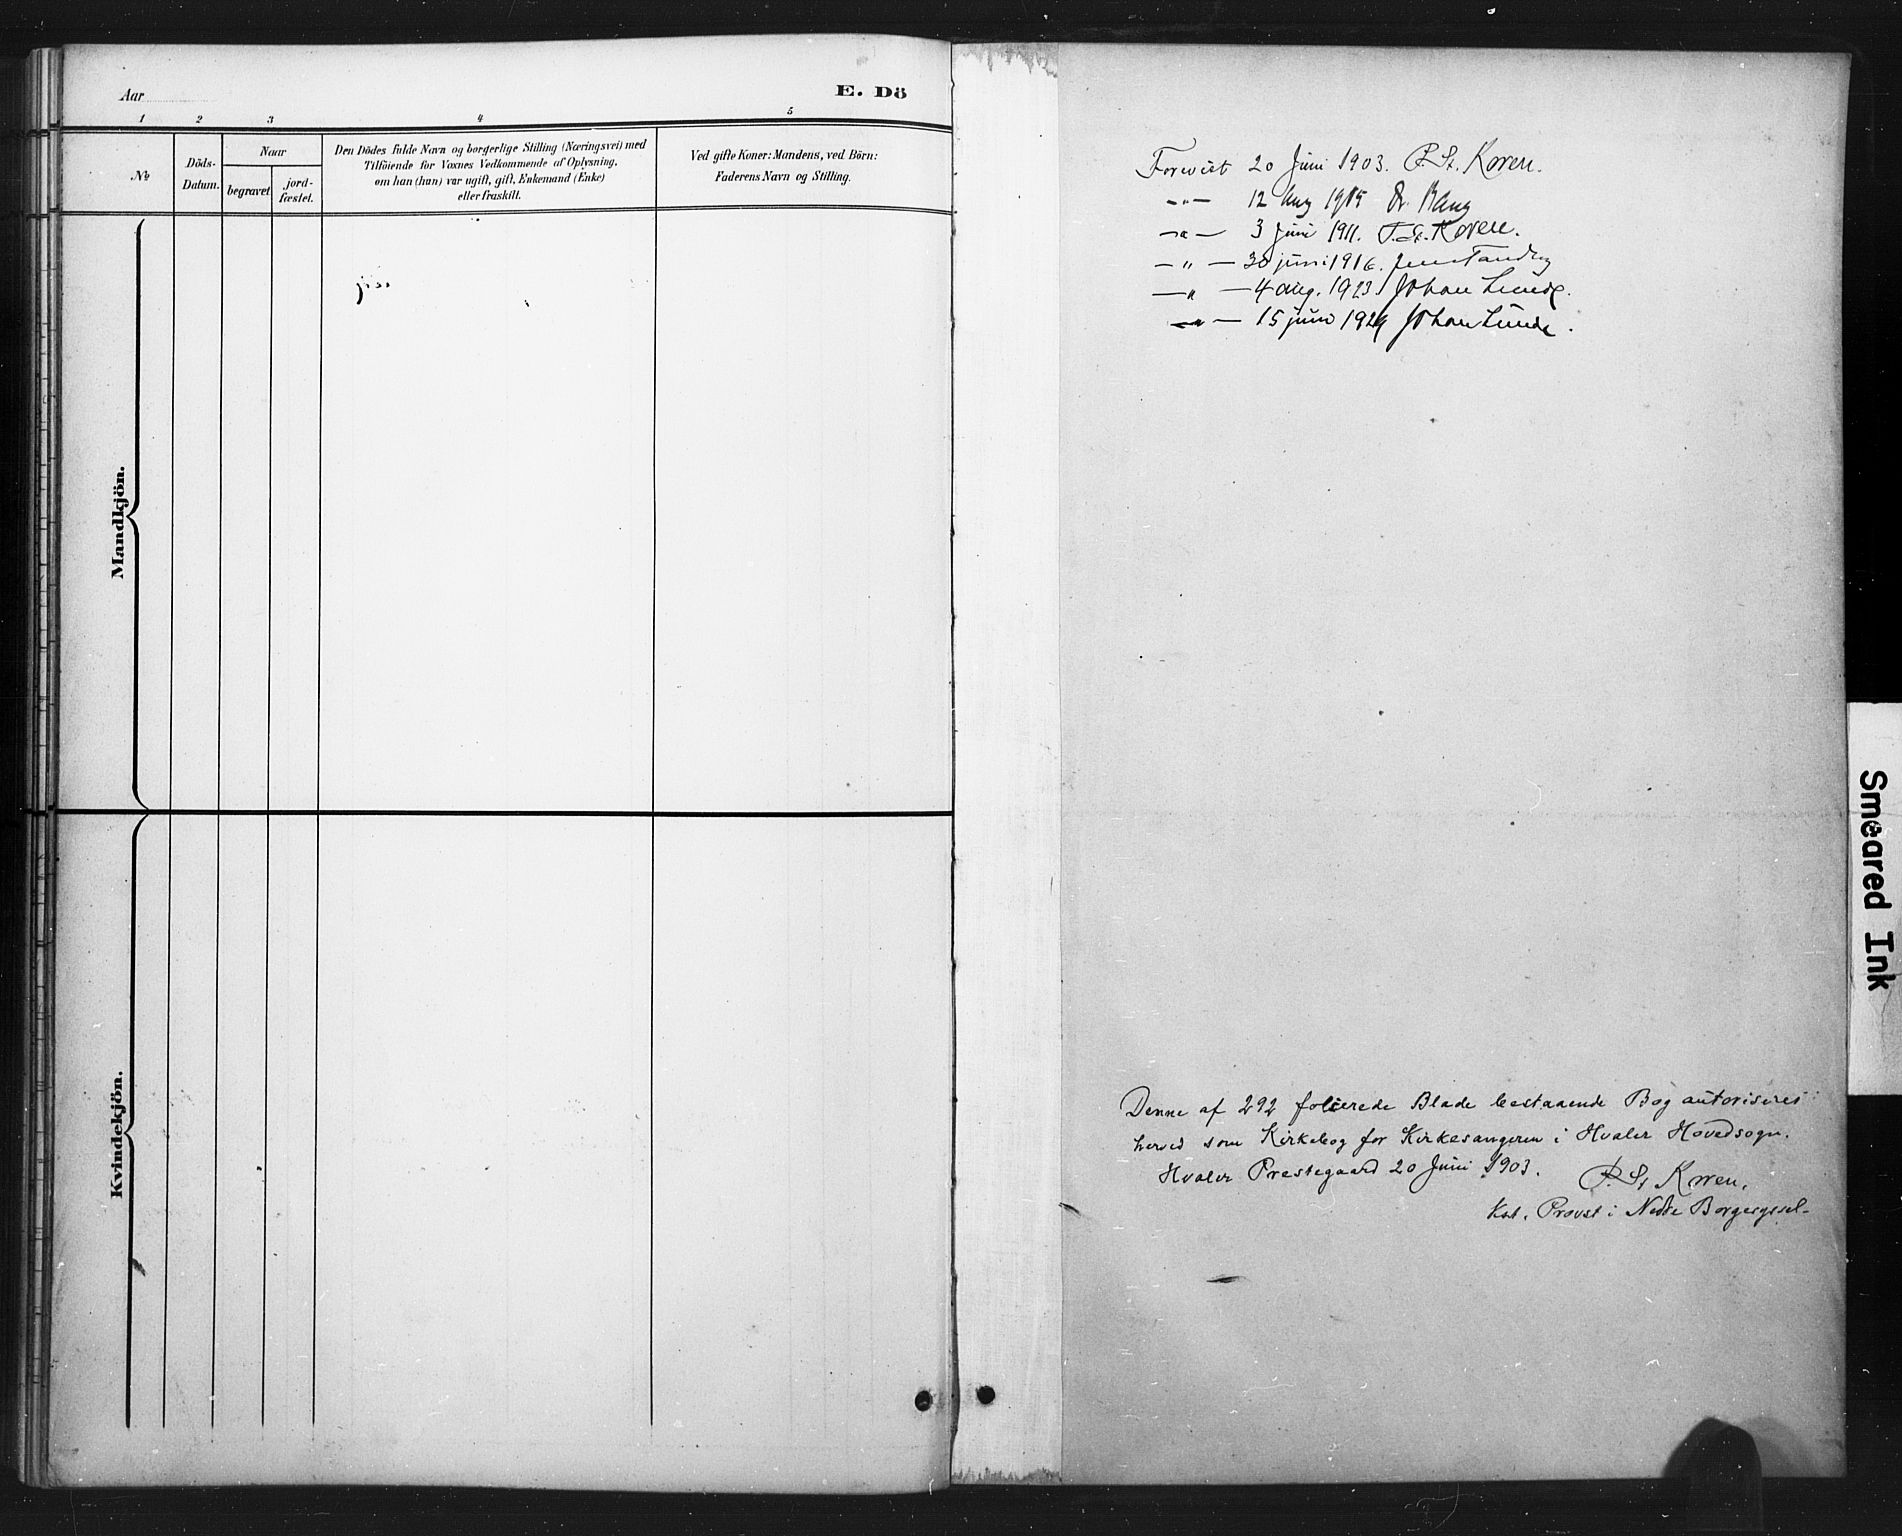 Aar
E. Dö
1 2 3 4 5
No
Döds-
Datum.
Naar
begravet
jord-
fæstet.
Den Dödes fulde Navn og borgerlige Stilling (Næringsvei) med
Tilföiende for Voxnes Vedkommende af Oplysning,
om han (hun) var ugift, gift, Enkemand (Enke)
eller fraskilt.
Ved gifte Koner: Mandens, ved Börn:
Faderens Navn og Stilling.
Mandkjön.
Kvindekjön.
Forevist 20 Juni 1903. P. St. Koren.
—"— 12 Aug 1905 Dr. Bang
—"— 3 Juni 1911. P. St. Koren.
—"— 30 juni 1916. Jens Tandberg
—"— 4 aug. 1923 Johan Lunde.
—"— 15 juni 1929 Johan Lunde.
Denne af 292 folierede Blade bestaaende Bog autoriseres
herved som Kirkebog for Kirkesangeren i Hvaler Hovedsogn.
Hvaler Prestegaard 20 Juni 1903. P. St. Koren.
Kst. Provst i Nedre Borgesyssel.
Smeared Ink